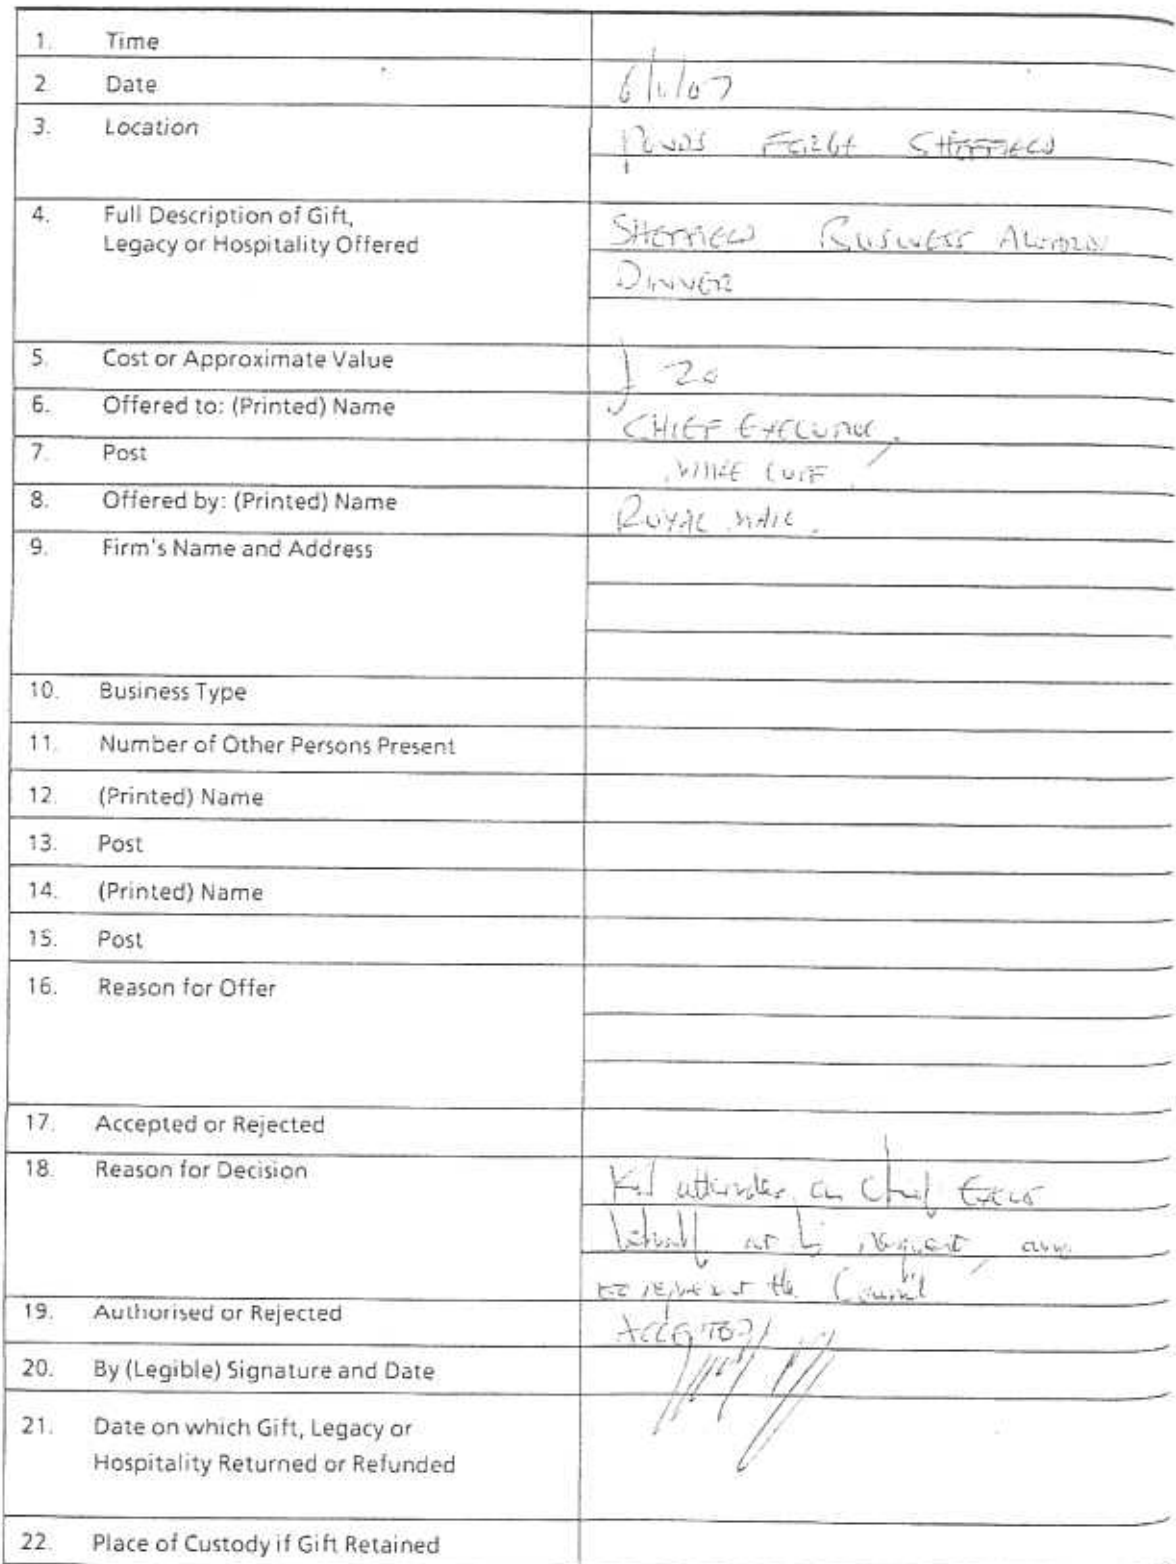 1. Time
2. Date 6/11/07
3. Location PONDS FORGE SHEFFIELD
4. Full Description of Gift,
Legacy or Hospitality Offered SHEFFIELD BUSINESS AWARDS
DINNER
5. Cost or Approximate Value £ 20
6. Offered to: (Printed) Name CHIEF EXECUTIVE,
7. Post
8. Offered by: (Printed) Name ROYAL MAIL.
9. Firm's Name and Address
10. Business Type
11. Number of Other Persons Present
12. (Printed) Name
13. Post
14. (Printed) Name
15. Post
16. Reason for Offer
17. Accepted or Rejected
18. Reason for Decision attended on Chief Execs
behalf at his request, and
to represent the Council
19. Authorised or Rejected ACCEPTED
20. By (Legible) Signature and Date
21. Date on which Gift, Legacy or
Hospitality Returned or Refunded
22. Place of Custody if Gift Retained